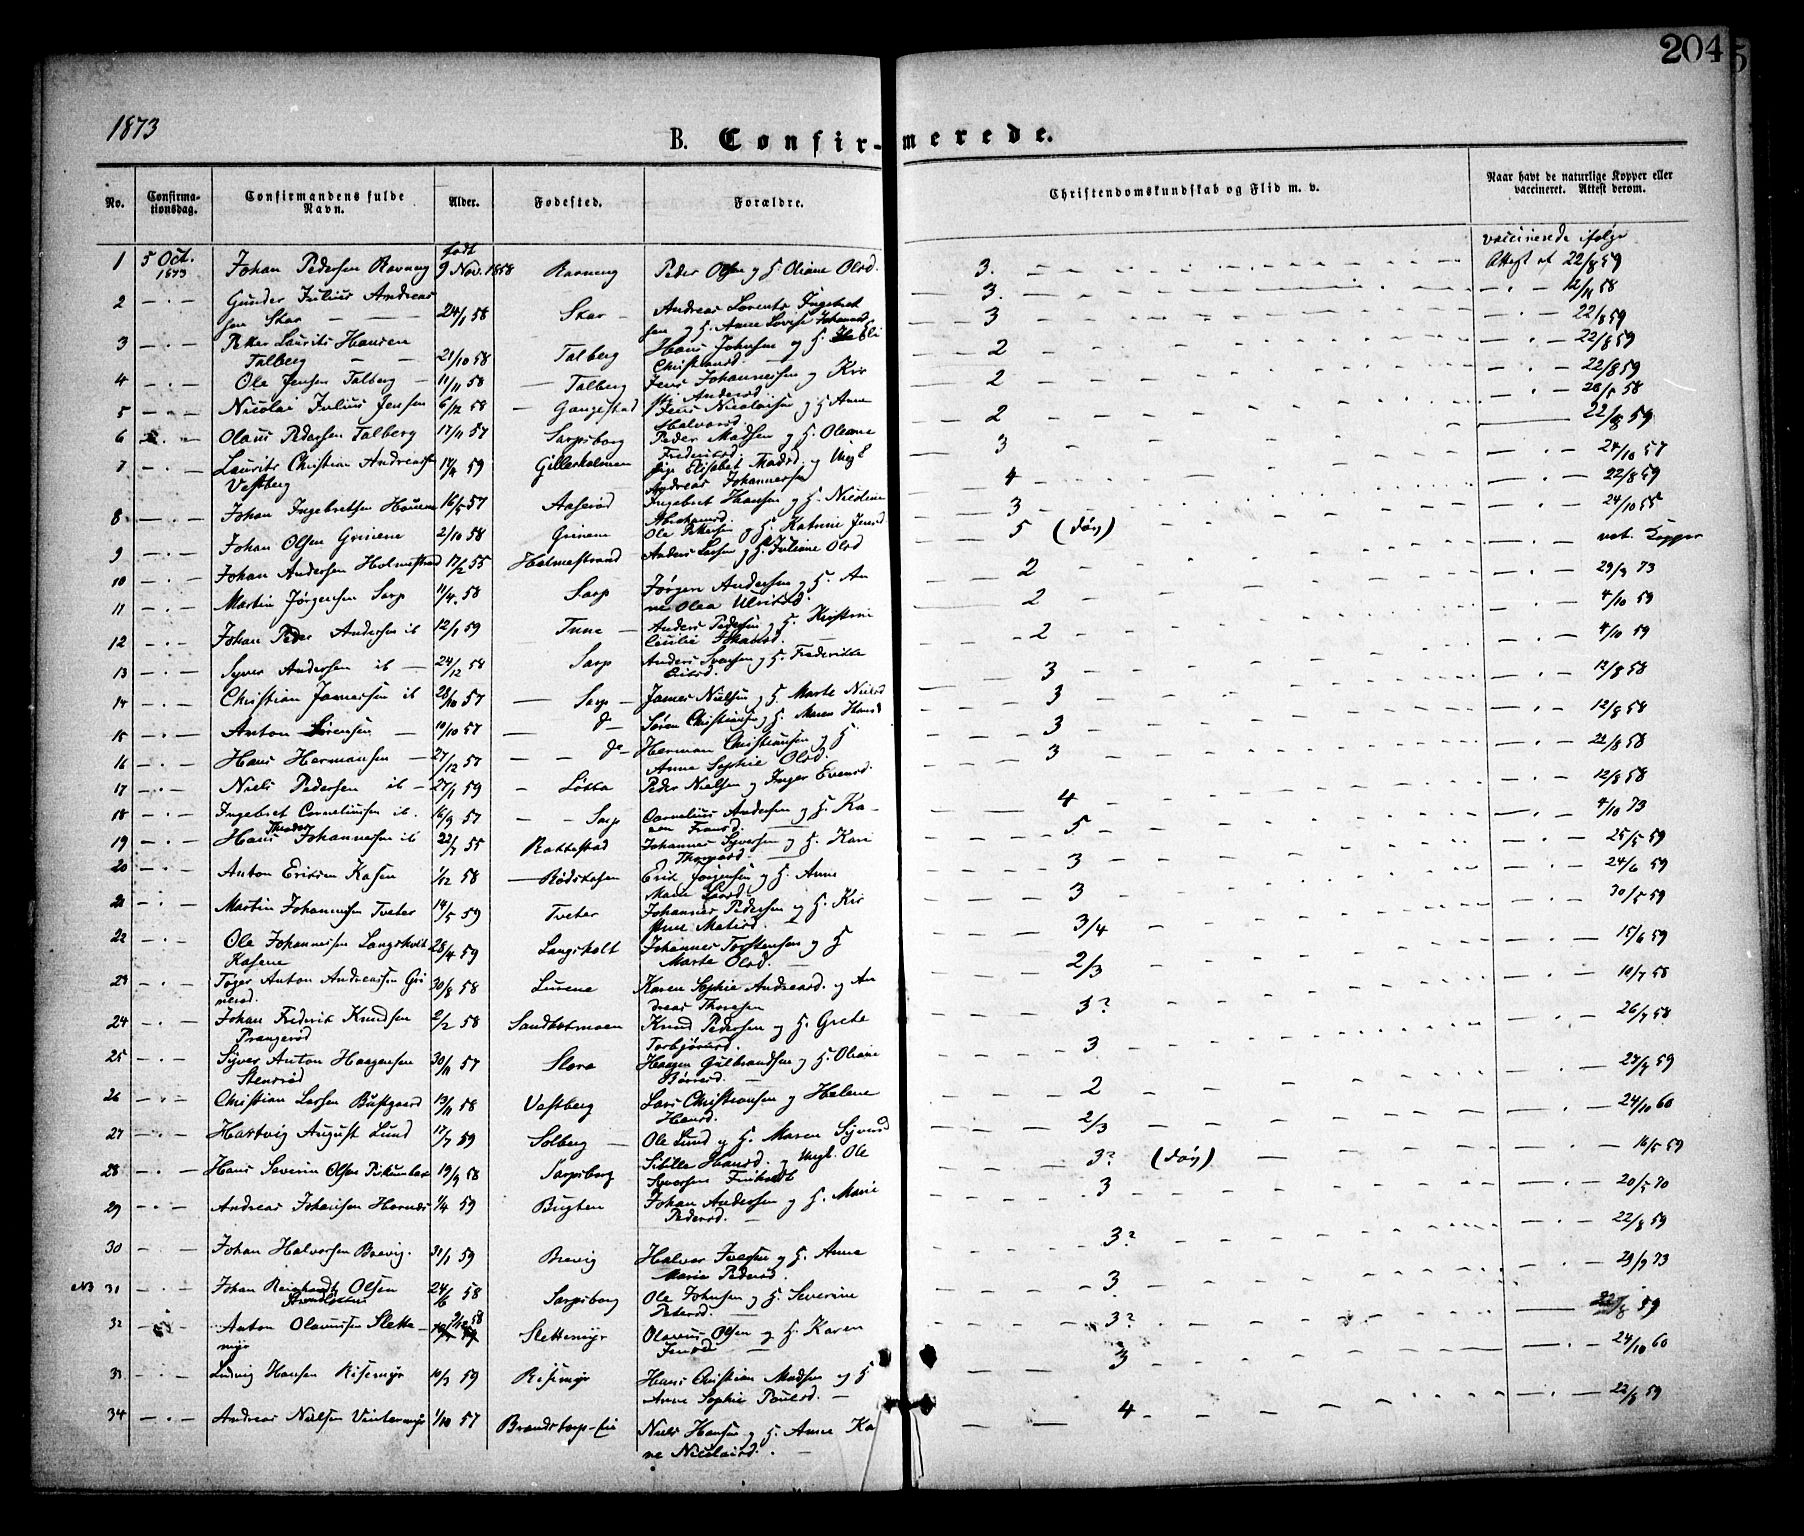 204
5
1873
B. Confir- merede.
No.
Confirma-
tionsdag.
Confirmandens fulde
Navn.
Alder.
Fødested.
Forældre.
Christendomskundskab og Flid m. v.
Naar havt de naturlige Kopper eller
vaccineret. Attest derom.
født vaccinerede ifølge
1 5 Oct. 1873 Johan Pedersen Ravneng 9 Nov. 1858 Ravneng Peder Olsen og H. Oliane Olsd. 3. Attest af 22/8 59
2 Gunder Julius Andreas
sen Skar 24/1 58 Skar Andreas Lorents Ingebret
sen og H. Anne Lovise Johannesd 3. 12/11 58
3 Peter Laurits Hansen
Talberg 21/10 58 Talberg Hans Johnsen og H. Eli
Christiansd. 3 22/8 59
4 Ole Jensen Talberg 11/11 58 Talberg Jens Johannessen og Kir
sti Andersd. 2 22/8 59
5 Nicolai Julius Jensen 6/12 58 Gangestad Jens Nicolaisen og H. Anne
Halvorsd. 2 22/8 59
6 Olaus Pedersen Talberg 17/11 57 Sarpsborg Peder Madsen og H. Oleane
Frederiksd. 2 58
7 Laurits Christian Andreassen
Vestberg 14/4 59 Gilleholmen Pige Elisabet Madsd. og Ungk
Andreas Johannessen 3 22/8 59
8 Johan Ingebretsen Houen 16/5 57 Aaserød Ingebret Hansen og H. Nicoline
Abrahamsd. 4 24/10 57
9 Johan Olsen Grinene 2/10 58 Grinene Ole Pettersen og H. Katrine Jensd 3 22/8 59
10 Johan Andersen Holmestrand 17/2 55 Holmestrand Anders Larsen og H. Juliane Olsd 5 (døv) 24/10 55
nat. Kopper
11 Martin Jørgensen Sarp 11/4. 58 Sarp Jørgen Andersen og H. An
ne Olea Ulriksd. 2 29/3 73
12 Johan Peder Andersen ib 12/1 59 Tune Anders Pedersen og H. Kirstine
Cecilie Johansd. 2 4/10 59
13 Syver Andersen ib 24/12 58 Sarp Anders Svensen og H. Frederikke 2 4/10 59
14 Christian Jamessen ib 28/10 57 Sarp James Nielsen og H. Marte Nielsd 3 12/8 58
15 Anton Sørensen 10/10 57 do Søren Christiansen og H. Maren Hansd 3 12/8 58
16 Hans Hermansen 27/12 57 do Herman Christiansen og H.
Anne Sophie Olsd. 3 22/8 58
17 Niels Pedersen ib 27/1 59 Løkka Peder Nielsen og Inger Evensd 3 12/8 58
18 Ingebret Corneliussen ib. 16/9 57 Sarp Cornelius Andersen og H. Ka-
ren Fransd. 4 4/10 73
19 Hans Theodor Johannessen ib 22/7 55 Rakkestad Johannes Syversen og H. Kari
5 25/5 59
20 Anton Eriksen Kasen 1/12 58 Rødskasen Erik Jørgensen og H. Anne
Marie 3 24/6 59
21 Martin Johannessen Tveter 14/5 59 Tveter Johannes Pedersen og H. Kir
stine Matisd. 3 30/5 59
22 Ole Johannessen Langskolt
Kasene 28/4 59 Langskolt Johannes Torstensen og H
Marte Olsd. 3/4 15/6 59
23 Tøger Anton Andreassen Gri
nerød. 30/8 58 Lunene Karen Sophie Andreasd. og An
dreas Thoresen 2/3 10/7 58
24 Johan Frederik Knudsen
Prangerød 2/2 58 Sandtostmoen Knud Pedersen og H. Grete
Torbjørnsd. 3? 26/7 58
25 Syver Anton Haagensen
Stensrød 30/11 57 Slora Haagen Gulbrandsen og H. Oliane
Børresd. 3 27/7 59
26 Christian Larsen Bustgaard 13/11 58 Vestberg Lars Christiansen og Helene
Hansd. 2 24/10 60
27 Hartvig August Lund 17/7 59 Solberg Ole Lund og H. Maren Syversd 2/3 16/5 59
28 Hans Severin Olsen 19/9 58 Sarpsborg Sibille Hansd. og Ungk. Ole
Syversen 3? (døv) 20/5 70
29 Andreas Johansen Hornæs 1/4 59 Bugten Johan Andersen og H. Marie
Pedersd. 3 22/8 59
30 Johan Halvorsen Brevig. 31/1 59 Brevig Halvor Iversen og H. Anne
Marie Pedersd. 3? 29/9 73
NB 31 Johan Reinhardt Olsen
24/6 58 Sarpsborg Ole Johnsen og H. Severine
Petersd. 3 22/8 59
32 Anton Olaussen Slette-
myr 9/12 58 Slettemyr Olavus Olsen og H. Karen
Jensd. 3? 24/10 60
33 Ludvig Hansen Risemyr 10/3 59 Risemyr Hans Christian Madsen og H
Anne Sophie Poulsd. 3 22/8 59
34 Andreas Nielsen Vintermyr 1/10 57 Brandstorp-Eie Niels Hansen og H. Anne Ka
ne Nicolaisd. 4